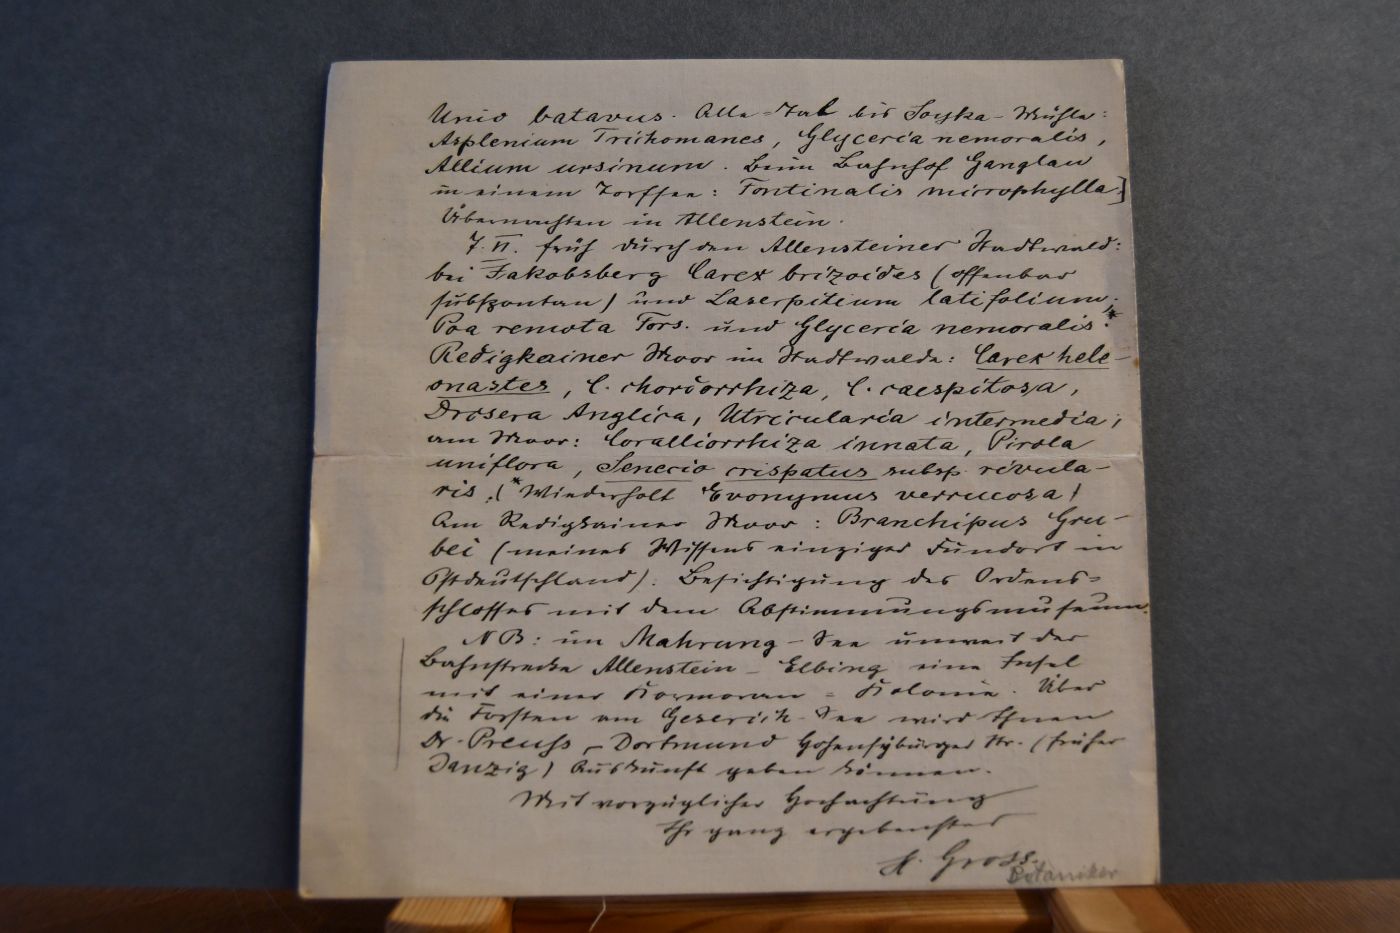 Unio batavus. Alle-Tal bis Soyka-Mühle:
Asplenium Trichomanes, Glyceria nemoralis,
Allium ursinum. Beim Bahnhof Ganglau
in einem Torfsee: Fontinalis microphylla.]
Übernachten in Allenstein.
7. VI. früh durch den Allensteiner Stadtwald:
bei Jakobsberg Carex brizoides (offenbar
subspontan) und Laserpitium latifolium.
Poa remota Fors. und Glyceria nemoralis.*
Redigkainer Moor im Stadtwalde: Carex hele-
onastes, C. chordorrhiza, C. caespitosa,
Drosera Anglica, Utricularia intermedia;
am Moor: Coralliorrhiza innata, Pirola
uniflora, Senecio crispatus subsp. rivula-
ris. (*Wiederholt Evonymus verrucosa)
Am Redigkainer Moor: Branchipus Gru-
bei (meines Wissens einziger Fundort in
Ostdeutschland). Besichtigung des Ordens-
schlosses mit dem Abstimmungsmuseum.
NB: im Mahrung-See unweit der
Bahnstrecke Allenstein-Elbing eine Insel
mit einer Kormoran-Kolonie. Über
die Forsten am Geserich-See wird Ihnen
Dr. Preuss-Dortmund Hohensyburger Str. (früher
Danzig) Auskunft geben können.
Mit vorzüglicher Hochachtung
Ihr ganz ergebenster
H. Gross.
Botaniker